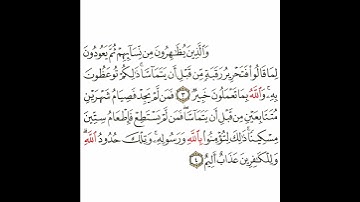 وَٱلَّذِينَ يُظَٰهِرُونَ مِن نِّسَآئِهِمْ ثُمَّ يَعُودُونَ
لِمَا قَالُوا۟ فَتَحْرِيرُ رَقَبَةٍ مِّن قَبْلِ أَن يَتَمَآسَّا ۚ ذَٰلِكُمْ تُوعَظُونَ
بِهِۦ ۚ وَٱللَّهُ بِمَا تَعْمَلُونَ خَبِيرٌ ٣ فَمَن لَّمْ يَجِدْ فَصِيَامُ شَهْرَيْنِ
مُتَتَابِعَيْنِ مِن قَبْلِ أَن يَتَمَآسَّا ۖ فَمَن لَّمْ يَسْتَطِعْ فَإِطْعَامُ سِتِّينَ
مِسْكِينًا ۚ ذَٰلِكَ لِتُؤْمِنُوا۟ بِٱللَّهِ وَرَسُولِهِۦ ۚ وَتِلْكَ حُدُودُ ٱللَّهِ ۗ
وَلِلْكَٰفِرِينَ عَذَابٌ أَلِيمٌ ٤